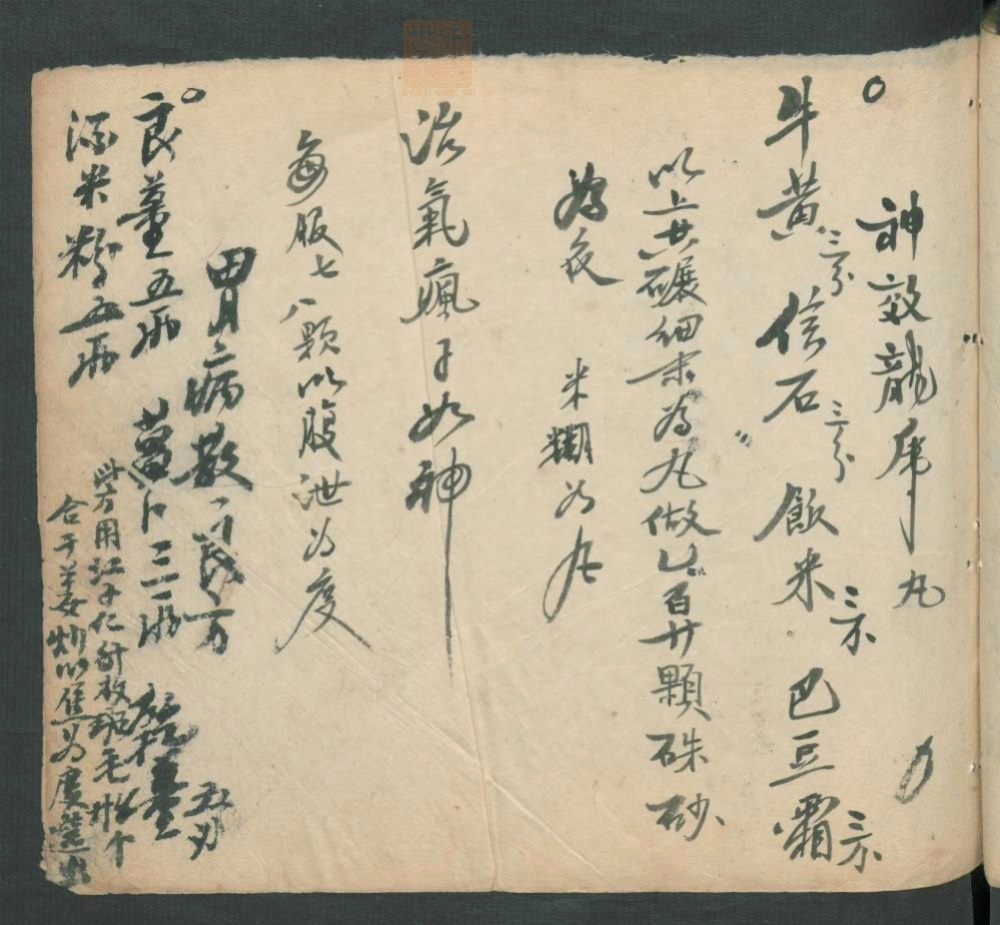 神效龍虎丸
牛黃三分 信石三分 飯米三錢 巴豆霜三錢
以上共碾細末為丸做乚百廿顆硃砂
為衣 米糊为丸
治氣瘋子如神
每服七八顆以腹泄为度
胃病散 良方
良薑五兩 三兩 薑 五分
米粉五兩
此方用江子仁 枚班毛 个
合干姜炒以焦为度